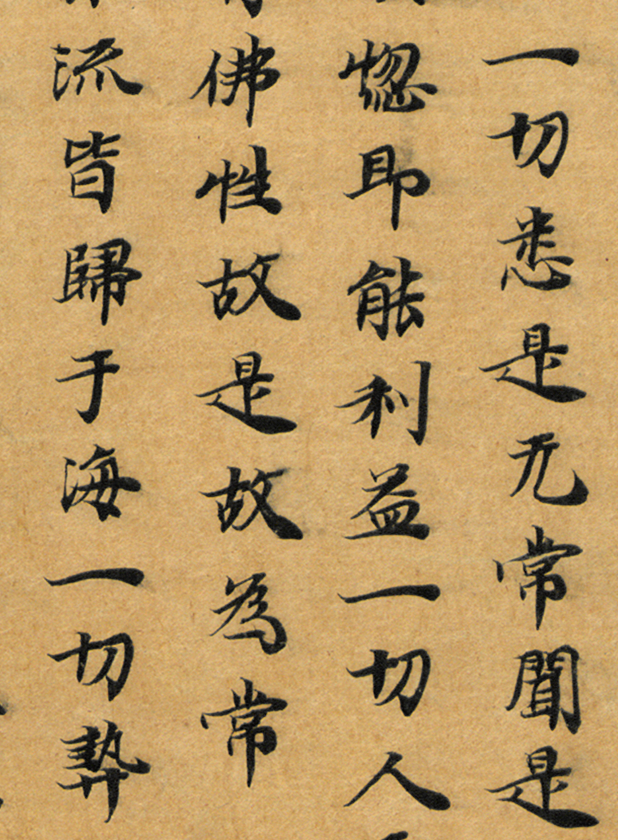 一切悉是无常聞是
惱即能利益一切人
佛性故是故為常
流皆歸于海一切契